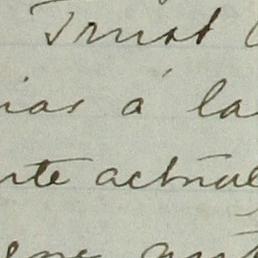 Trust
ias á la
nte actual